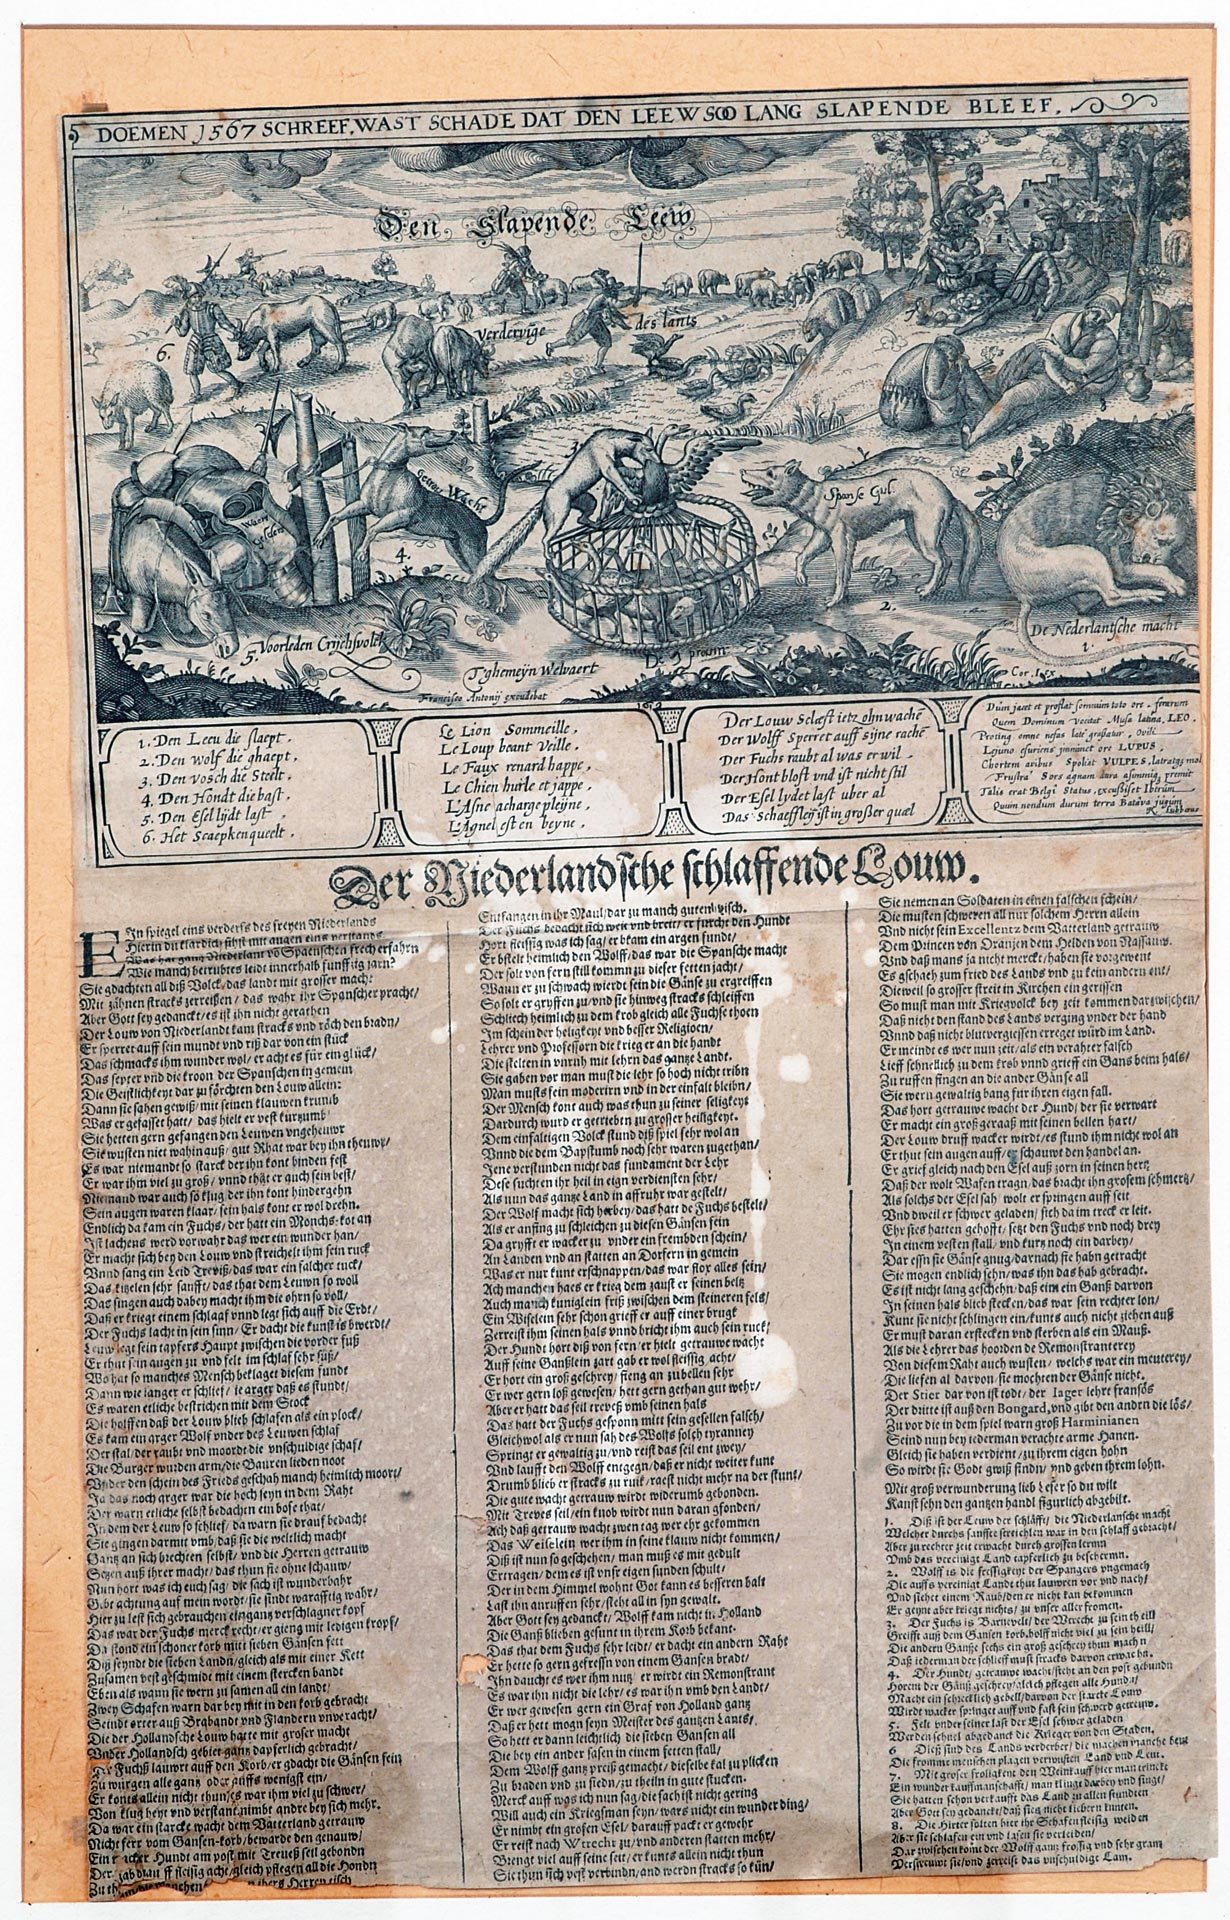 DOEMEN 1567 SCHREEF, WAST SCHADE DAT DEN LEEW SOO LANG SLAPENDE BLEEF.
Den Slapende Leew
verdervige des lants
6.
7
8
Getrou Wacht
Spanse Gul.
4.
2.
5. Voorleden Crijchsvolck
T'ghemeyn Welvaert
De Nederlantsche macht
1.
Francisco Antonij excudebat
1. Den Leeu die slaept,
2. Den wolf die ghaept,
3. Den vosch die Steelt,
4. Den Hondt die bast,
5. Den Esel lijdt last,
6. Het Scaepken queelt,
Le Lion Sommeille,
Le Loup beant Veille,
Le Faux renard happe,
Le Chien hurle et jappe,
L'Asne acharge pleijne,
L'Agnel est en beyne,
Der Louw Schlæft ietz ohn wachē
Der Wolff Sperret auff sijne rachē
Der Fuchs raubt al was er wil
Der Hont blost vnd ist nicht stil
Der Esel lydet last uber al
Das Schaefflein ist in großer quæl
Dum jacet et proflat somnum toto ore ferarum
Quem Dominum vocitat Musa latina, LEO,
Protinq omne nefas latè grassatur, ovili
Ieiuno esuriens imminet ore LUPUS,
Chortem avibus Spoliat VULPES, latratq
Frustrà Sors agnam dura asinumq premit
Talis erat Belgi Status, excussisset Iberûm
Quum nondum durum terra Batava jugum
Der Niederlandsche schlaffende Louw.
EIn spiegel eins verderbs des freyen Niederlands
Hierin du klardich sihst mit augen eins verstands
Was hat gantz Niederlant võ Spaenschen frech erfahrn
Wie manch betrubtes leidt innerhalb funfftig jarn?
Sie gdachten all diß Volck/das landt mit grosser mach:
Mit zähnen stracks zerreißen/das wahr ihr Spanscher pracht/
Aber Gott sey gedanckt/es ist ihn nicht gerathen
Der Louw von Niederlandt kam stracks vnd röch den bradn/
Er sperret auff sein mundt vnd riß dar von ein stück
Das schmacks ihm wunder wol/er acht es für ein glück/
Das septer vnd die kroon der Spanschen in gemein
Die Geistlichkeyt dar zu förchten den Louw allein:
Dann sie sahen gewiß/mit seinen klauwen krumb
Was er gefasset hatt/das hielt er vest kurtzumb
Sie hetten gern gefangen den Leuwen vngeheuwr
Sie wusten niet wahin auß/gut Rhat war bey ihn theuwr/
Es war niemandt so starck der ihn kont binden fest
Er war ihm viel zu groß/vnnd thät er auch sein best/
Niemand war auch so klug der ihn kont hindergehn
Sein augen waren klaar/sein hals kont er wol drehn.
Endlich da kam ein Fuchs/der hatt ein Monchs-kot an
Ist lachens werd vorwahr das wer ein wunder han/
Er macht sich bey den Louw vnd streichelt ihm sein ruck
Vnnd sang ein Leid Treviß/das war ein falscher tuck/
Das kitzelen sehr saufft/das that dem Leuwn so woll
Das singen auch dabey macht ihm die ohrn so voll/
Daß er kriegt einem schlaaf vnnd legt sich auff die Erdt/
Der Fuchs lacht in sein sinn/Er dacht die kunst is bwerdt/
Leuw lege sein tapfers Haupt zwischen die vorder füß
Er thut sein augen zu vnd felt im schlaf sehr süß/
Wo hat so manches Mensch beklaget diesem fundt
Dann wie langer er schlief/ie arger daß es stundt/
Es waren etliche bestrichen mit dem Stock
Die holffen daß der Louw blieb schlafen als ein plock/
Es kam ein arger Wolf vnder des Leuwen schlaf
Der stal/der raubt vnd moordt die vnschuldige schaf/
Die Burger wurden arm/die Bauren lieden noot
Vnder den schein des Frieds geschah manch heimlich moort/
Ja das noch arger war die hoch seyn in dem Raht
Der warn etliche selbst bedachen ein bose that/
In dem der Leuw so schlief/da warn sie drauf bedacht
Sie gingen darmit vmb/daß sie die weltlich macht
Gantz an sich brechten selbst/vnd die Herren getrauw
Setzen auß ihrer macht/das thun sie ohne schauw/
Nun hort was ich euch sag/die sach ist wunderbahr
Gebt achtung auf mein wordt/sie sindt waraffttig wahr/
Hier zu lest sich gebrauchen ein gantz verschlagner kopf
Das war der Fuchs merck recht/er gieng mit ledigen kropf/
Da stond ein schoner korb mitt sieben Gänsen fett
Diß seyndt die sieben Landn/gleich als mit einer Kett
Zusamen vest geschmidt mit einem stercken bandt
Eben als wann sie wern zu samen all ein landt/
Zwey Schafen warn dar bey mit in den korb gebracht
Seindt orter auß Brabandt vnd Flandern vnveracht/
Die der Hollandsche Louw hatte mit groser macht
Vnder Hollandsch gebiet gantz dapferlich gebracht/
Der Fuchs lauwrt auff den Korb/er gdacht die Gänsen fein
Zu würgen alle gantz oder auffs wenigst ein/
Er konts allein nicht thun/es war ihm viel zu schwer/
Von klug heyt vnd verstant nimbt andre bey sich mehr.
Da war ein starcke wacht dem Vatterland getrauw
Nicht ferr vom Gansen-korb/bewarde den genauw/
Ein Hundt am post mit Treueß seil gebondn
acht/gleich pflegen all die Hondn
Entfangen in ihr Maul/dar zu manch guten bisch.
Der Fuchs bedacht sich weit vnd breit/er furcht den Hundt
Hort fleissig was ich sag/er bkam ein argen fundt/
Er bstelt heimlich den Wolff/das war die Spansche macht
Der solt von fern still kommn zu dieser fetten jacht/
Wann er zu schwach wierdt sein die Gänse zu ergreiffen
So solt er gryffen zu/vnd sie hinweg stracks schleiffen
Schliech heimlich zu dem krob gleich alle Fuchse thoen
Im schein der heligkeyt vnd besser Religioen/
Lehrer vnd Professorn die krieg er an die handt
Die stelten in vnruh mit lehrn das gantze Landt.
Sie gaben vor man must die lehr so hoch nicht tribn
Man musts fein moderirn vnd in der einfalt bleibn/
Der Mensch kont auch was thun zu seiner seligkeyt
Dardurch wurd er getrieben zu grosser heiligkeyt.
Dem einfaltigen Volck stund diß spiel sehr wol an
Vnnd die dem Bapstumb noch sehr waren zugethan/
Jene verstunden nicht das fundament der Lehr
Dese suchten ihr heil in eign verdiensten sehr/
Als nun das gantze Land in affruhr war gestelt/
Der Wolf macht sich herbey/das hatt de Fuchs bestelt/
Als er anfing zu schleichen zu diesen Gänsen fein
Da gryfft er wacker zu vnder ein frembden schein/
An Landen vnd an statten an Dorfern in gemein
Was er nur kunt erschnappen/das war flox alles sein/
Ach manchen haes er krieg dem zaust er seinen beltz
Auch manch kuniglein friß zwischen dem steineren fels/
Ein Wiselein sehr schon grieff er auff einer brugk
Zerreist ihm seinen hals vnnd bricht ihm auch sein ruck/
Der Hundt hort diß von fern/er hielt getrauwe wacht
Auff seine Gänßlein zart gab er wol fleissig acht/
Er hort ein groß geschrey/fieng an zu bellen sehr
Er wer gern loß gewesen/hett gern gethan gut wehr/
Aber er hatt das seil treveß vmb seinen hals
Das hatt der Fuchs gesponn mitt sein gesellen falsch/
Gleichwol als er nun sah des Wolfs solch tyranney
Springt er gewaltig zu/vnd reist das seil ent zwey/
Vnd laufft den Wolff entgegn/daß er nicht weiter kunt
Drumb blieb er stracks zu ruck/raest nicht mehr na der stunt/
Die gute wacht getrauw wirdt widerumb gebonden.
Mit Treves seil/ein knob wirdt nun daran gfonden/
Ach daß getrauw wacht zwen tag wer ehr gekommen
Das Weiselein wer ihm in seine klauw nicht kommen/
Diß ist nun so geschehen/man muß es mit gedult
Ertragen/dem es ist vnsr eigen sunden schult/
Der in dem Himmel wohnt Got kan es besseren balt
Last ihn anruffen sehr/steht all in syn gewalt.
Aber Gott sey gedanckt/Wolff kam nicht in Holland
Die Ganß blieben gesunt in ihrem Korb bekant.
Das that dem Fuchs sehr leidt/er dacht ein andern Raht
Er hette so gern gefressn von einem Gansen bradt/
Ihn daucht es wer ihm nutz er wirdt ein Remonstrant
Es war ihn nicht die lehr/es war ihn vmb den Landt/
Er wer gewesen gern ein Graf von Holland gantz
Daß er hett mogn seyn Meister des gantzen Lants/
So hett er dann leichtlich die sieben Gänsen all
Die bey ein ander sasen in einem fetten stall/
Dem Wolff gantz preiß gemacht/dieselbe kal zu plicken
Zu braden vnd zu siedn/zu theiln in gute stucken.
Merck auff was ich nun sag/die sach ist nicht gering
Will auch ein Kriegsman seyn/wars nicht ein wunder ding/
Er nimbt ein großen Esel/darauff packt er gewehr
Er reist nach Wtrecht zu/vnd anderen statten mehr/
Brengt viel auff seine seit/er kunts allein nicht thun
Sie thun sich vest verbindn/and werdn stracks so kün/
Sie nemen an Soldaten in einen falschen schein/
Die musten schweren all nur solchem Herrn allein
Vnd nicht sein Excellentz dem Vatterland getrauw
Dem Princen von Oranjen dem Helden von Nassauw.
Vnd daß mans ja nicht merckt/haben sie vorgewent
Es gschaeh zum fried des Lands vnd zu kein andern ent/
Dieweil so grosser streit in Kirchen ein gerissen
So must man mit Kriegvolck bey zeit kommen darzwischen/
Daß nicht den stand des Lands verging vnder der hand
Vnnd daß nicht blutvergiessen erreget würd im Land.
Er meindt es wer nun zeit/als ein verahter falsch
Lieff schnellich zu dem krob vnnd grieff ein Gans beim hals/
Zu ruffen fingen an die ander Gänse all
Sie wern gewaltig bang für ihren eigen fall.
Das hort getrauwe wacht der Hund/der sie verwart
Er macht ein groß geraaß mit seinen bellen hart/
Der Louw druff wacker wirdt/es stund ihm nicht wol an
Er thut sein augen auff/er schauwt den handel an.
Er grief gleich nach den Esel auß zorn in seinen hertz
Daß der wolt Wafen tragn/das bracht ihn grosem schmertz/
Als solchs der Esel sah wolt er springen auff seit
Vnd dweil er schwer geladen/sich da im treck er leit.
Ehr sies hatten gehofft/setzt den Fuchs vnd noch drey
In einem vesten stall/vnd kurtz noch ein darbey/
Dar essn sie Gänse gnug/darnach sie habn getracht
Sie mogen endlich sehn/was ihn das hab gebracht.
Es ist nicht lang geschehn/daß eim ein Ganß darvon
In seinen hals blieb stecken/das war sein rechter lon/
Kunt sie nicht schlingen ein/kunts auch nicht ziehen auß
Er must daran ersticken vnd sterben als ein Mauß.
Als die Lehrer das hoorden de Remonstranterey
Von diesem Raht auch wusten/welchs war ein meuterey/
Die liefen al darvon/sie mochten der Gänse nicht.
Der Stier dar von ist todt/der Iager lehrt fransös
Der dritte ist auß den Bongard/vnd gibt den andrn die lös/
Zu vor die in dem spiel warn groß Harminianen
Seind nun bey iederman verachte arme Hanen.
Gleich sie haben verdient/zu ihrem eigen hohn
So wirdt sie Godt gwiß findn/vnd geben ihrem lohn.
Mit groß verwunderung lieb Leser so du wilt
Kanst sehn den gantzen handl figurlich abgebilt.
1. Diß ist der Leuw der schläfft/die Niederlansche macht
Welcher durchs sanffte streichlen war in den schlaff gebracht/
Aber zu rechter zeit erwacht durch grossen lermn
Vmb das vereinige Land tapferlich zu beschermn.
2. Wolff is die fressigkeyt der Spangers vngemach
Die auffs vereinigt Landt thut lauwren vor vnd nach/
Vnd siehet einem Raub/den er nicht kan bekommen
Er geynt aber kriegt nichts/zu vnser aller fromen.
3. Der Fuchs is Barnevelt/der Wtrecht zu sein theill
Greifft auß dem Gansen korb/holff nicht viel zu sein heill/
Die andern Ganße sechs ein groß geschrey thun machn
Daß iederman der schlieff must stracks darvon erwachn.
4. Der Hundt/getrauwe wacht/steht an den post gebunden
Horent der Gänß geschrey/gleich pflegen alle Hunden/
Macht ein schrecklich gebell/darvon der starcke Louw
Wirdt wacker springet auff vnd fast sein schwerd getreuw.
5. Felt vnder seiner last der Esel schwer geladen
Werden schnel abgedanct die Krieger von den Staden.
6 Diesß sind des Lands verderber/die machen manche beut
Die fromme menschen plagen verwusten Land vnd Leut.
7. Mit groser froligkeit den Weinkauff hier man trincke
Ein wunder kauffmanschafft/man klingt darbey vnd singt/
Sie hatten schon verkaufft das Land zu allen stundten
Aber Gott sey gedanckt/daß sieg nicht liebern kunten.
8. Die Hirten solten hier ihr Schafen fleisig weiden
Aber sie schlafen ein vnd lasen sie verleiden/
Dar zwischen komt der Wolff gantz frostig vnd sehr gram
Verstreuwt sie/vnd zerreist das unschuldige Lam.